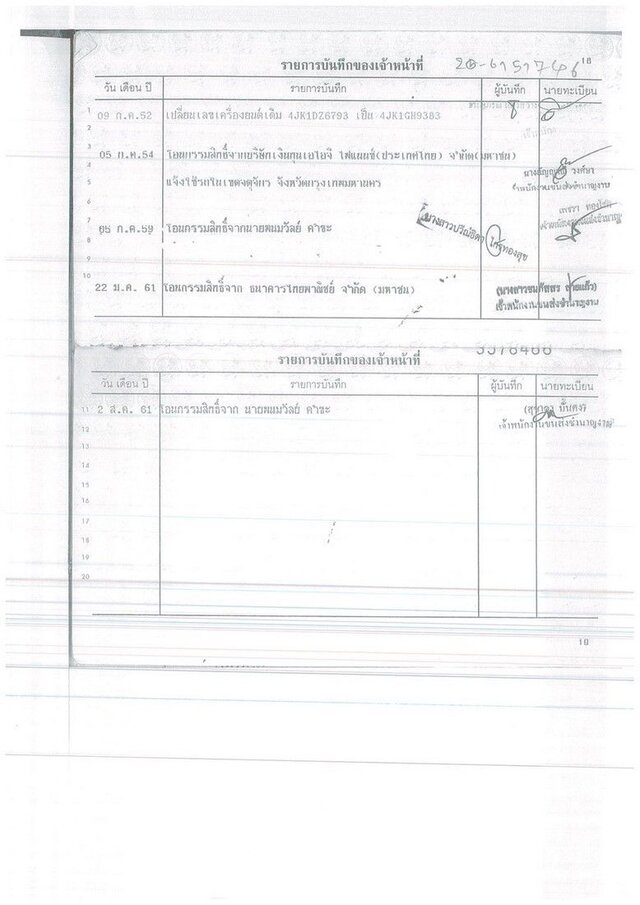 รายการบันทึกของเจ้าหน้าที่ 20-6151746 18
วัน เดือน ปี รายการบันทึก ผู้บันทึก นายทะเบียน
1
2
3
5
7
9
10
09 ก.ค.52 เปลี่ยนเลขเครื่องยนต์เดิม 4JK1DZ6793 เป็น 4JK1GH9383
05 ก.ค.54 โอนกรรมสิทธิ์จากบริษัทเงินทุนเอไอจี ไฟแนนซ์(ประเทศไทย) จำกัด(มหาชน)
แจ้งใช้รถในเขตจตุจักร จังหวัดกรุงเทพมหานคร
วงศ์ษา
เจ้าพนักงานขนส่งชำนาญงาน
05 ก.ค.59 โอนกรรมสิทธิ์จากนายพนมวัลย์ คำชะ
นางสาวปริณธิดา ไทรทองสุข
22 ม.ค. 61 โอนกรรมสิทธิ์จาก ธนาคารไทยพาณิชย์ จำกัด (มหาชน)
เจ้าพนักงานขนส่งชำนาญงาน
3378466
รายการบันทึกของเจ้าหน้าที่
วัน เดือน ปี รายการบันทึก ผู้บันทึก นายทะเบียน
11 2 ส.ค. 61 โอนกรรมสิทธิ์จาก นายพนมวัลย์ คำชะ
เจ้าพนักงานขนส่งชำนาญงาน
12
13
14
15
16
17
18
19
20
19